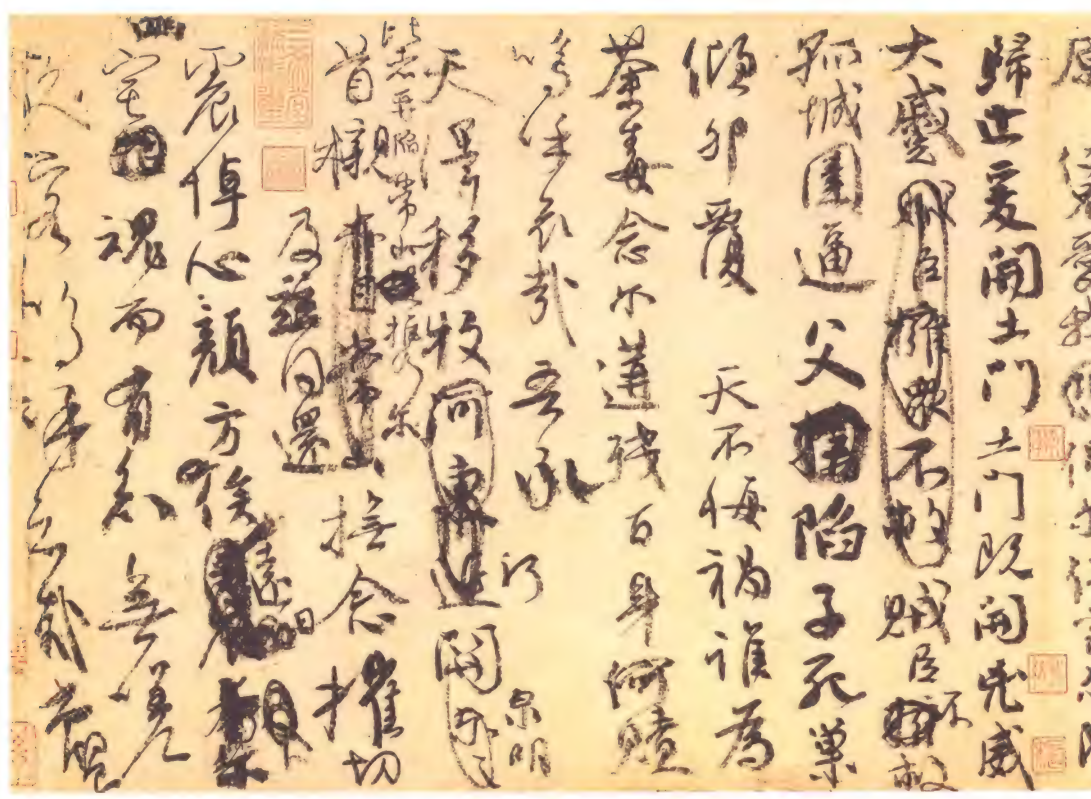 歸止爰開土門土門既開凶威
大蹙賊臣擁衆不救賊臣不擁救
孤城圍逼父陷子死巢
傾卵覆 天不悔禍誰為
荼毒念爾遘殘百身何贖
嗚乎哀哉吾承
泉明
天澤移牧河東近關
比者再陷常山攜爾
首櫬常撫念摧切
及茲同還
震悼心顏方俟遠日
宅魂而有知無嗟久
客嗚呼哀哉尚饗